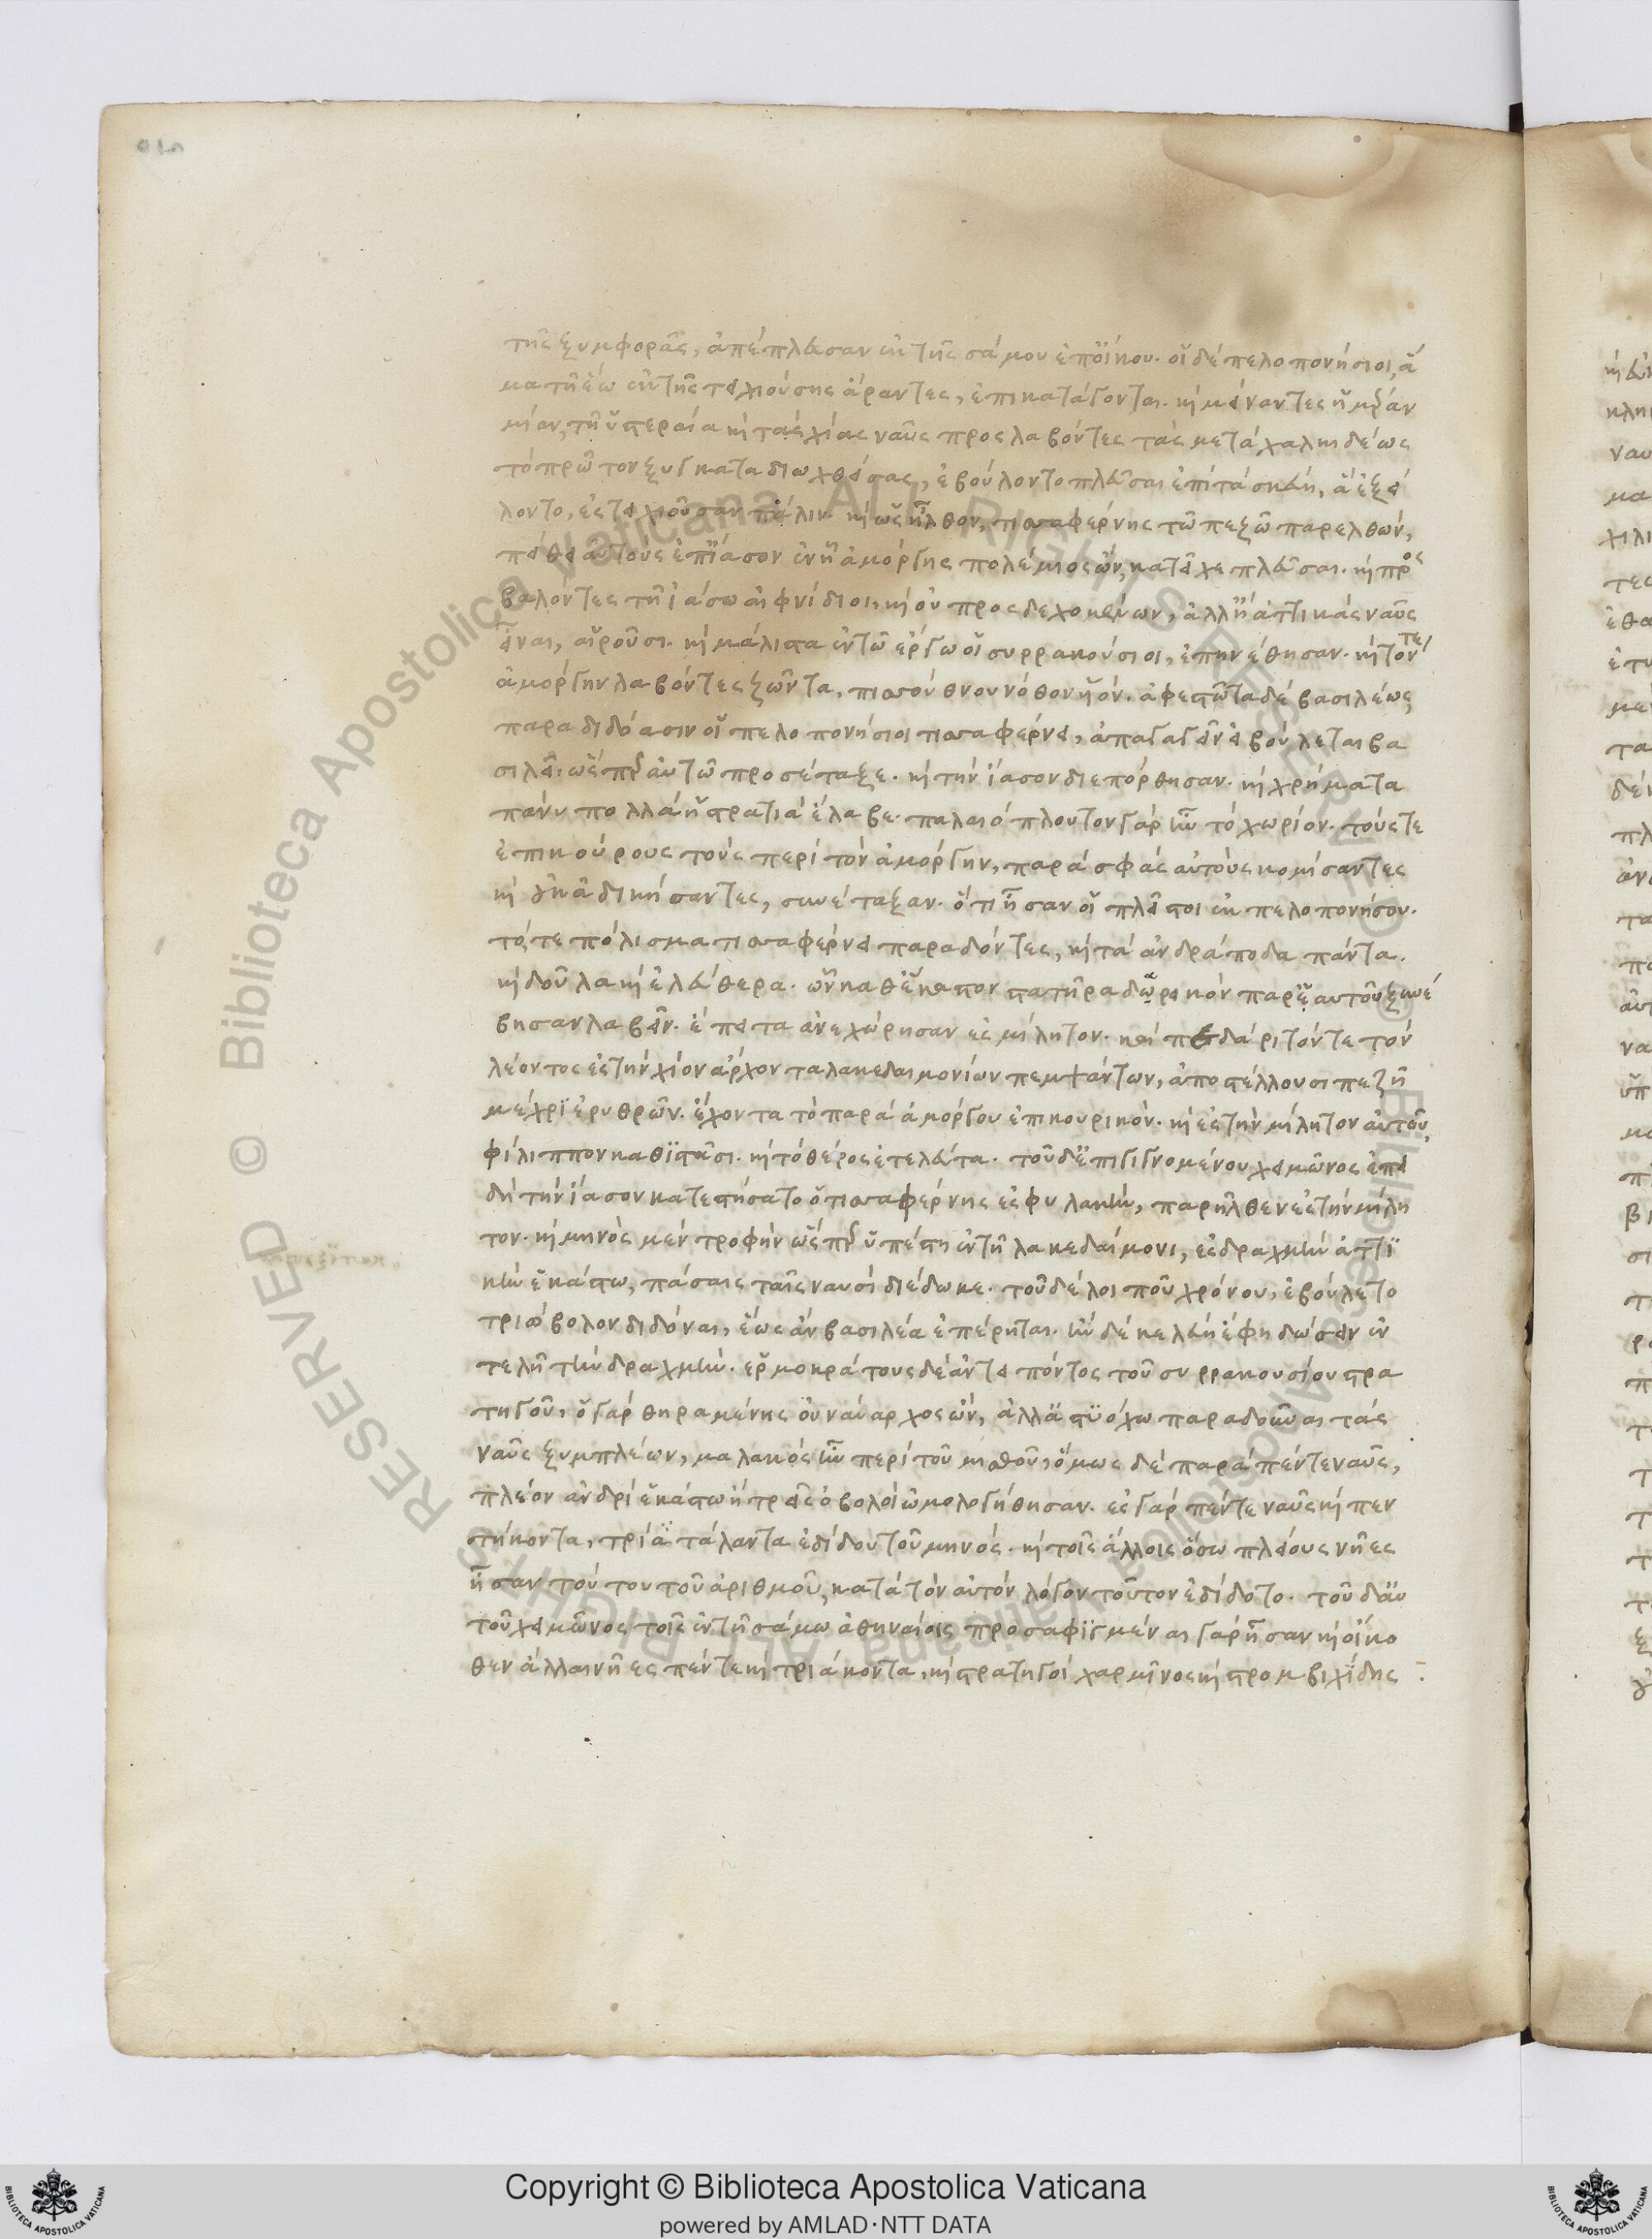 τῆς ξυμφορᾶς, ἀπέπλευσαν ἐκ τῆς σάμου ἐπ' οἴκου. οἱ δὲ πελοπονήσιοι, ἅ
μα τῆ ἕω ἐκ τῆς τειχιούσης ἄραντες, ἐπικατάγονται. καὶ μείναντες ἡμέραν
μίαν, τῆ ὑστεραία καὶ τὰς χίας ναῦς προσλαβόντες τὰς μετὰ χαλκιδέως
τὸ πρῶτον ξυγκαταδιωχθείσας, ἐβούλοντο πλεῦσαι ἐπὶ τὰ σκεύη, ἃ ἐξεί
λοντο, ἐς τειχιοῦσαν πάλιν. καὶ ὡς ἦλθον, τισσαφέρνης τῶ πεζῶ παρελθών,
πείθει αὐτοὺς ἐπὶ ἴασον ἐν ἧ ἀμόργης πολέμιος ὤν, κατεῖχε πλεῦσαι. καὶ προς
βαλόντες τῆ ἰάσω αἰφνίδιοι, καὶ οὐ προσδεχομένων, ἀλλ' ἢ ἀττικὰς ναῦς
εἶναι, αἱροῦσι. καὶ μάλιστα ἐν τῶ ἔργω οἱ συρρακούσιοι, ἐπηνέθησαν. καὶ τόν τε
ἀμόργην λαβόντες ζῶντα, πισσούθνου νόθον υἱόν. ἀφεστῶτα δὲ βασιλέως,
παραδιδόασιν οἱ πελοπονήσιοι τισσαφέρνει, ἀπαγαγεῖν εἰ βούλεται βα
σιλεῖ, ὥσπερ αὐτῶ προσέταξε. καὶ τὴν ἴασον διεπόρθησαν. καὶ χρήματα
πάνυ πολλὰ ἡ στρατιὰ ἔλαβε. παλαιόπλουτον γὰρ ἦν τὸ χωρίον. τούς τε
ἐπικούρους τοὺς περὶ τὸν ἀμόργην, παρὰ σφὰς αὐτοὺς κομίσαντες
καὶ οὐκ ἀδικήσαντες, συνέταξαν. ὅτι ἦσαν οἱ πλεῖστοι ἐκ πελοπονήσου.
τό τε πόλισμα τισσαφέρνει παραδόντες, καὶ τὰ ἀνδράποδα πάντα.
καὶ δοῦλα καὶ ἐλεύθερα. ὧν καθ' ἕκαστον στατῆρα δαρεικὸν παρ' αὐτοῦ ξυνέ
βησαν λαβεῖν. ἔπειτα ἀνεχώρησαν ἐς μίλητον. καὶ πεδάριτόν τε τὸν
λέοντος ἐς τὴν χίον ἄρχοντα λακεδαιμονίων πεμψάντων, ἀποστέλλουσι πεζῆ
μέχρι ἐρυθρῶν. ἔχοντα τὸ παρὰ ἀμόργου ἐπικουρικόν. καὶ ἐς τὴν μίλητον αὐτοῦ,
φίλιππον καθιστᾶσι. καὶ τὸ θέρος ἐτελεύτα. τοῦ δ' ἐπιγιγνομένου χειμῶνος ἐπει
δὴ τὴν ἴασον κατεστήσατο ὁ τισσαφέρνης ἐς φυλακήν, παρῆλθεν ἐς τὴν μίλη
τον. καὶ μηνὸς μὲν τροφὴν ὥσπερ ὑπέστη ἐν τῆ λακεδαίμονι, ἐς δραχμὴν ἀττι
κὴν ἑκάστω, πάσαις ταῖς ναυσὶ διέδωκε. τοῦ δὲ λοιποῦ χρόνου, ἐβούλετο
τριώβολον διδόναι, ἕως ἂν βασιλέα ἐπέρηται. ἢν δὲ κελεύη ἔφη δώσειν ἐν
τελῆ τὴν δραχμήν. ἑρμοκράτους δὲ ἀντειπόντος τοῦ συρρακουσίου στρα
τηγοῦ, ὁ γὰρ θηραμένης οὐ ναύαρχος ὤν, ἀλλ' ἀστυόχω παραδοῦναι τὰς
ναῦς ξυμπλέων, μαλακὸς ἦν περὶ τοῦ μισθοῦ, ὅμως δὲ παρὰ πέντε ναῦς,
πλέον ἀνδρὶ ἑκάστω ἢ τρεῖς ὀβολοὶ ὡμολογήθησαν. ἐς γὰρ πέντε ναῦς καὶ πεν
τήκοντα, τρία τάλαντα ἐδίδου τοῦ μηνός. καὶ τοῖς ἄλλοις ὅσω πλείους νῆες
ἦσαν τούτου τοῦ ἀριθμοῦ, κατὰ τὸν αὐτὸν λόγον τοῦτον ἐδίδοτο. τοῦ δ' αὐ
τοῦ χειμῶνος τοῖς ἐν τῆ σάμω ἀθηναίοις προσαφιγμέναι γὰρ ἦσαν καὶ οἴκο
θεν ἄλλαι νῆες πέντε καὶ τριάκοντα, καὶ στρατηγοὶ χαρμῖνος καὶ στρομβιχίδης
Copyright © Biblioteca Apostolica Vaticana
powered by AMLAD·NTT DATA